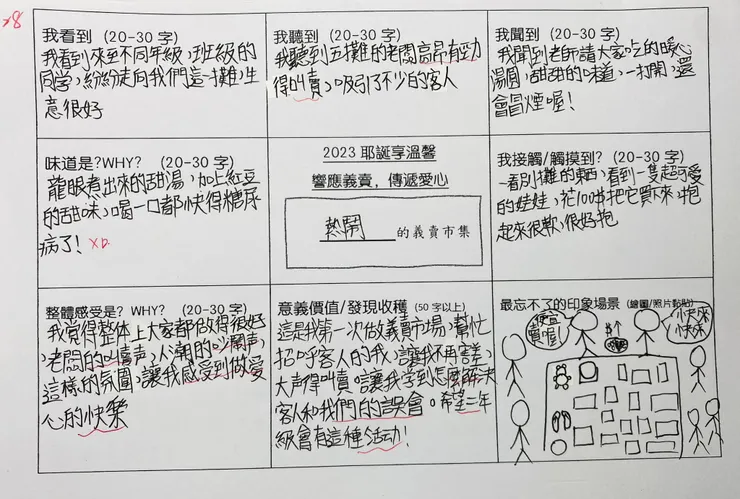 x8
我看到 (20-30 字)
我看到來至不同年級,班級的
同學,紛紛走向我們這一攤,生
意很好
我聽到 (20-30 字)
我聽到五攤的老闆高昂有勁
得叫賣,吸引了不少的客人
我聞到 (20-30 字)
我聞到老師請大家吃的暖心
湯圓,甜甜的味道,一打開,還
會冒煙喔!
味道是?WHY? (20-30 字)
龍眼煮出來的甜湯,加上紅豆
的甜味,喝一口都快得糖尿
病了! XD
2023 耶誕享溫馨
響應義賣,傳遞愛心
熱鬧 的義賣市集
我接觸/觸摸到? (20-30 字)
一看別攤的東西,看到一隻超可愛
的娃娃,花100$把它買下來,抱
起來很軟,很好抱
整體感受是? WHY? (20-30 字)
我覺得整體上大家都做得很好
,老闆的叫賣聲,人潮的吵鬧聲,
這樣的氛圍,讓我感受到做愛
心的快樂
意義價值/發現收穫 (50 字以上)
這是我第一次做義賣市場,幫忙
招呼客人的我,讓我不再害羞,
大聲得叫賣。讓我學到怎麼解決
客人和我們的誤會。希望二年
級會有這種活動!
最忘不了的印象場景 (繪圖/照片黏貼)
便宜
賣喔!
$
快來
快來